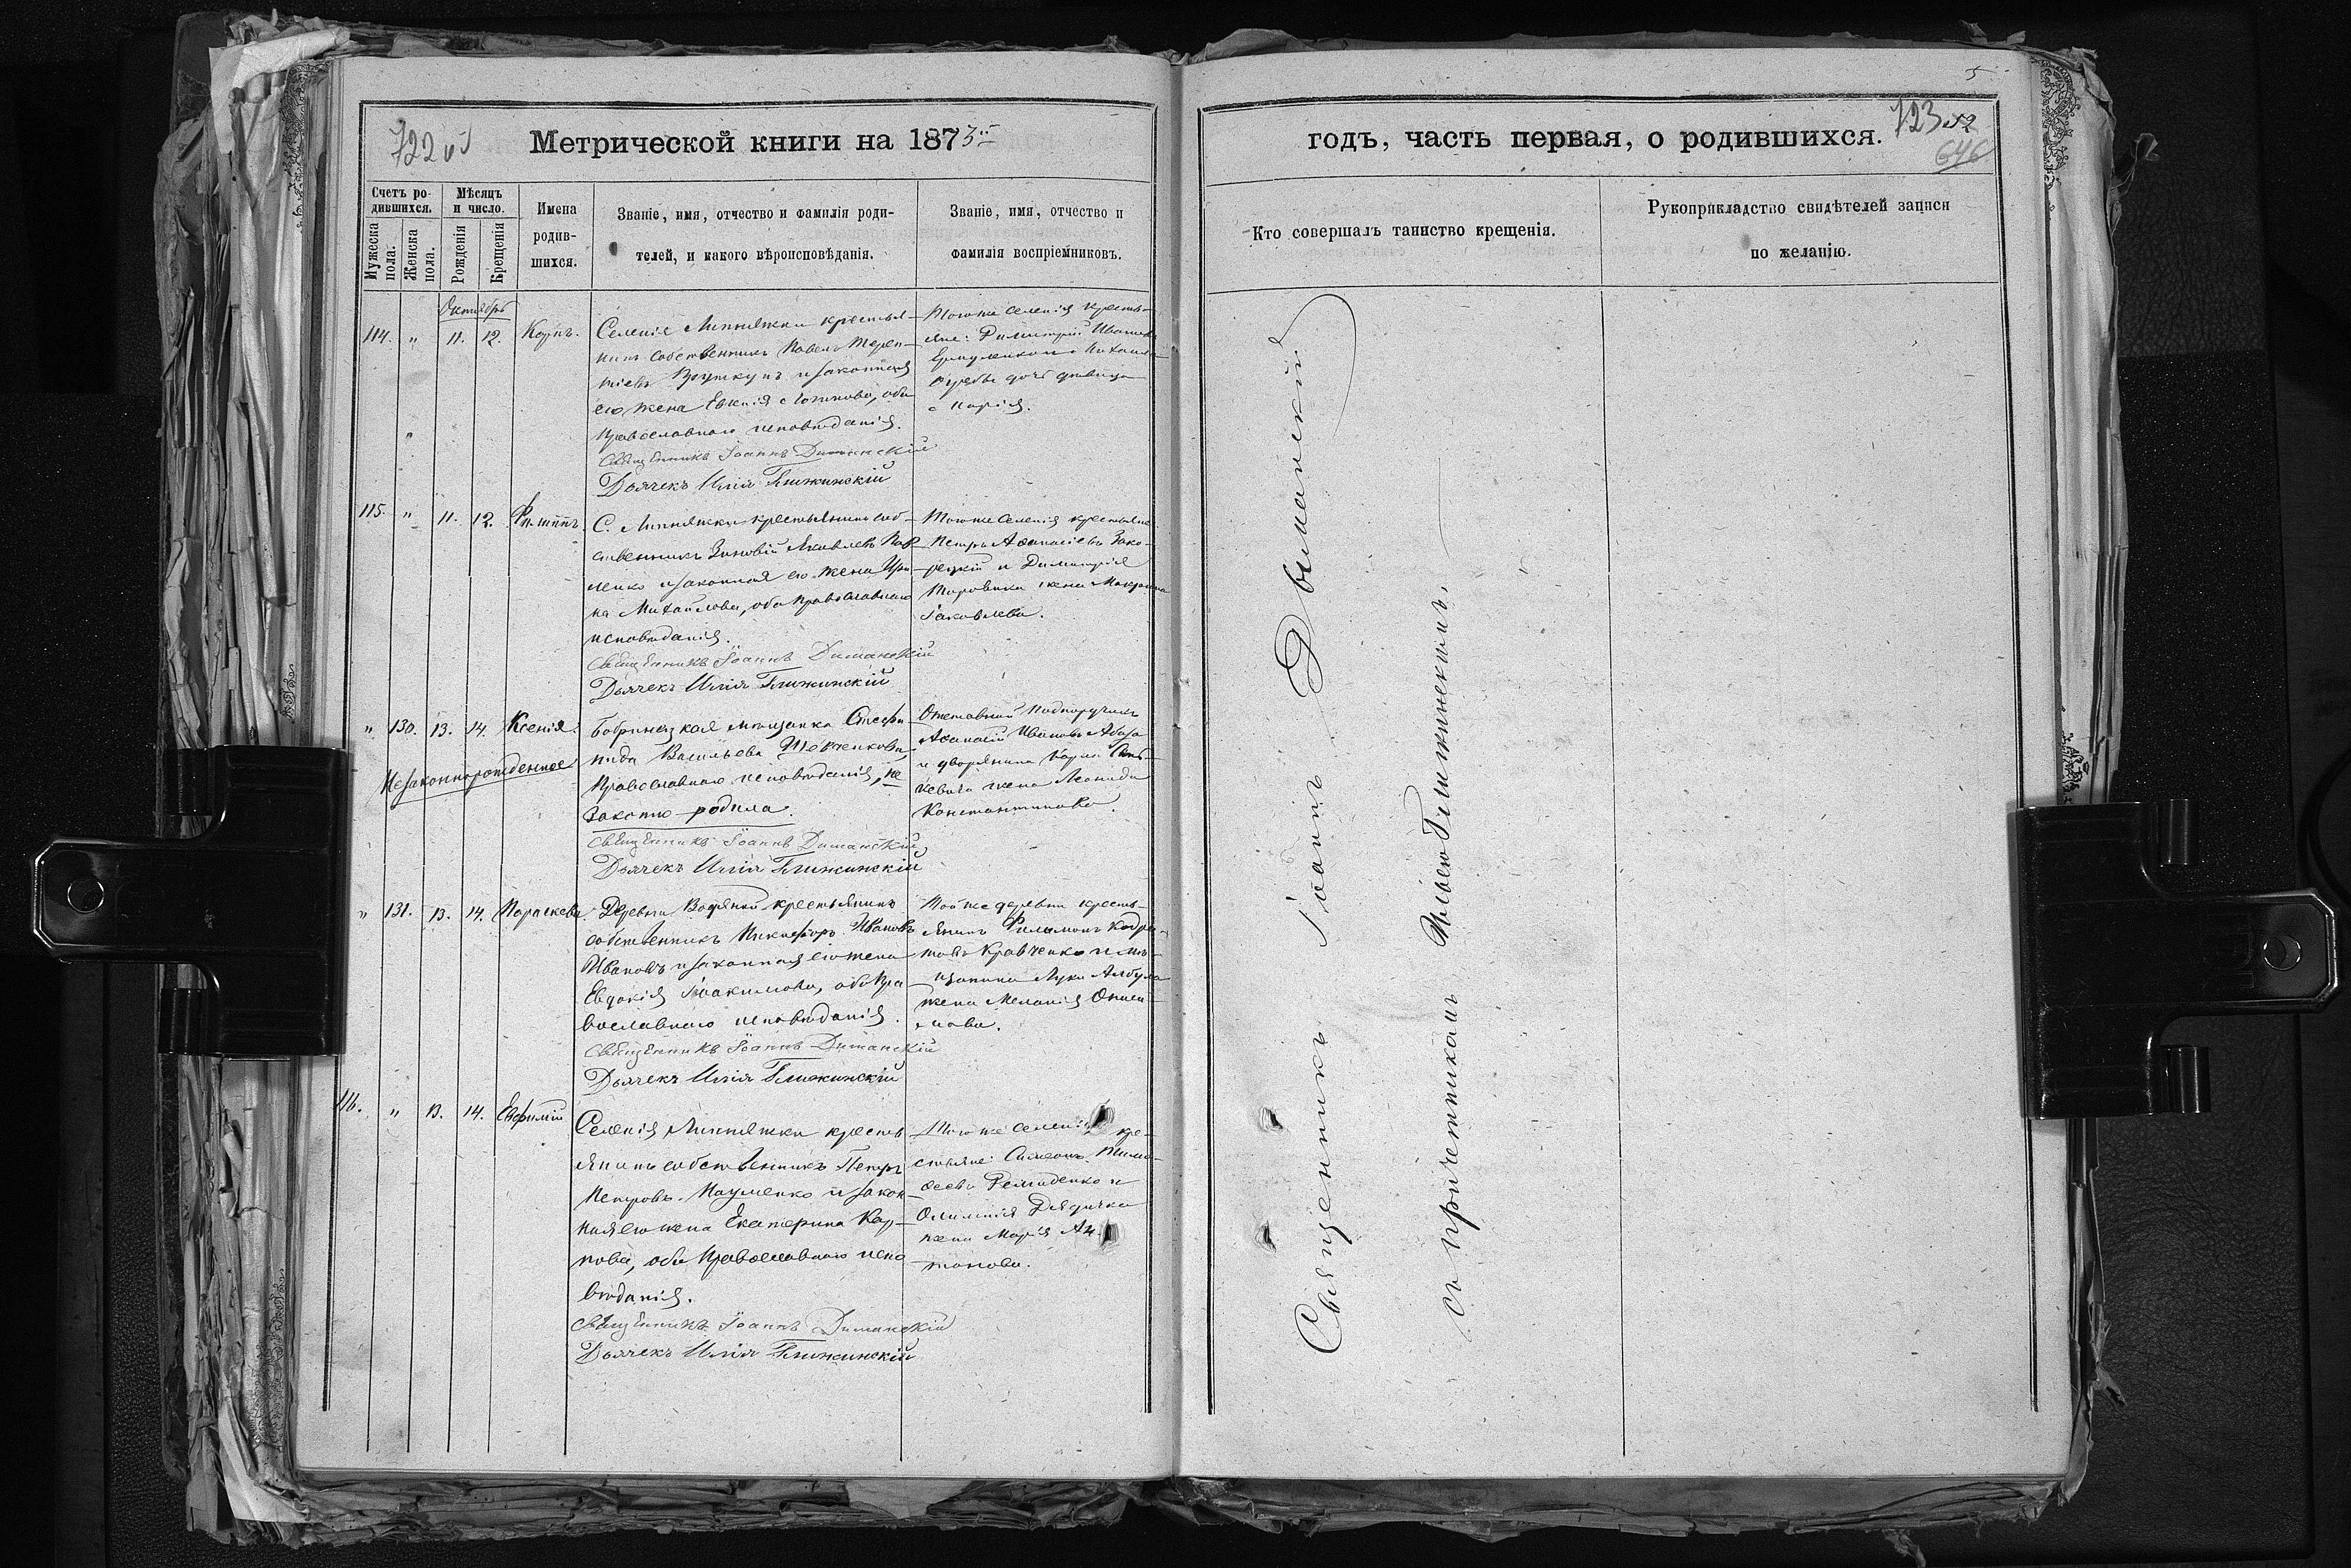 722 об
Метрической книги на 1873й
Счетъ ро-
дившихся.
Мѣсяцъ
и число.
Имена
родив-
шихся.
Званіе, имя, отчество и фамилія роди-
телей, и какого вѣроисповѣданія.
Званіе, имя, отчество и
фамилія воспріемниковъ.
Мужеска
пола.
Женска
пола.
Рожденія
Крещенія
Октябрь
114. " 11. 12. Карпъ.
Селенія Липняжки крестья-
нинъ собственникъ Павелъ Терен-
тіевъ и законная
его жена Евкнія Логинова, оба
Православнаго исповѣданія.
Священникъ Іоаннъ Диманскій
Дьячекъ Илія Ближинскій
Того же селенія кресть-
яне: Димитрій Ивановъ
и Михаила
дочь девица
Марія.
115. " 11. 12. Филиппъ.
С. Липняжки крестьянинъ соб-
ственникъ Зиновій Яковлевъ Пав-
ленко и законная его жена Ири-
на Михайлова, оба Православнаго
исповѣданія.
Священникъ Іоаннъ Диманскій
Дьячекъ Илія Ближинскій
Того же селенія крестьяне
Петръ Аѳанасіевъ Зако-
рецкій и Димитрія
Таровика жена Макрина
Іаковлева.
" 130. 13. 14. Ксенія.
Незаконнорожденное
Бобринецкая мѣщанка Стефа-
нида Васильева Шевченкова,
Православнаго исповѣданія, не
законно родила.
Священникъ Іоаннъ Диманскій
Дьячекъ Илія Ближинскій
Отставной Подпоручикъ
Аѳанасій Ивановъ Абаза
и дворянина
жена Леонида
Константинова.
" 131. 13. 14. Параскева.
Деревни Водяной крестьянинъ
собственникъ Никифоръ Ивановъ
Ивановъ и законная его жена
Евдокія Іоакимова, оба Пра
вославнаго исповѣданія.
Священникъ Іоаннъ Диманскій
Дьячекъ Илія Ближинскій
Той же деревни кресть-
янинъ Филимонъ Кодра-
товъ Кравченко и мѣ-
щанина Луки Албула
жена Меланія Ониси-
мова.
116. " 13. 14. Евфимій
Селенія Липняжки кресть
янинъ собственникъ Петръ
Петровъ Науменко и закон-
ная его жена Екатерина Кар-
пова, оба Православнаго испо
вѣданія.
Священникъ Іоаннъ Диманскій
Дьячекъ Илія Ближинскій
Того же селенія кре-
стьяне: Симеонъ Тимо-
ѳеевъ Демиденко и
жена Марія Ан-
тонова.
5
723
52
646
годъ, часть первая, о родившихся.
Кто совершалъ таинство крещенія.
Рукоприкладство свидѣтелей записи
по желанію.
Священникъ Іоаннъ Диманскій
съ причетникомъ Ильею Ближинскимъ.